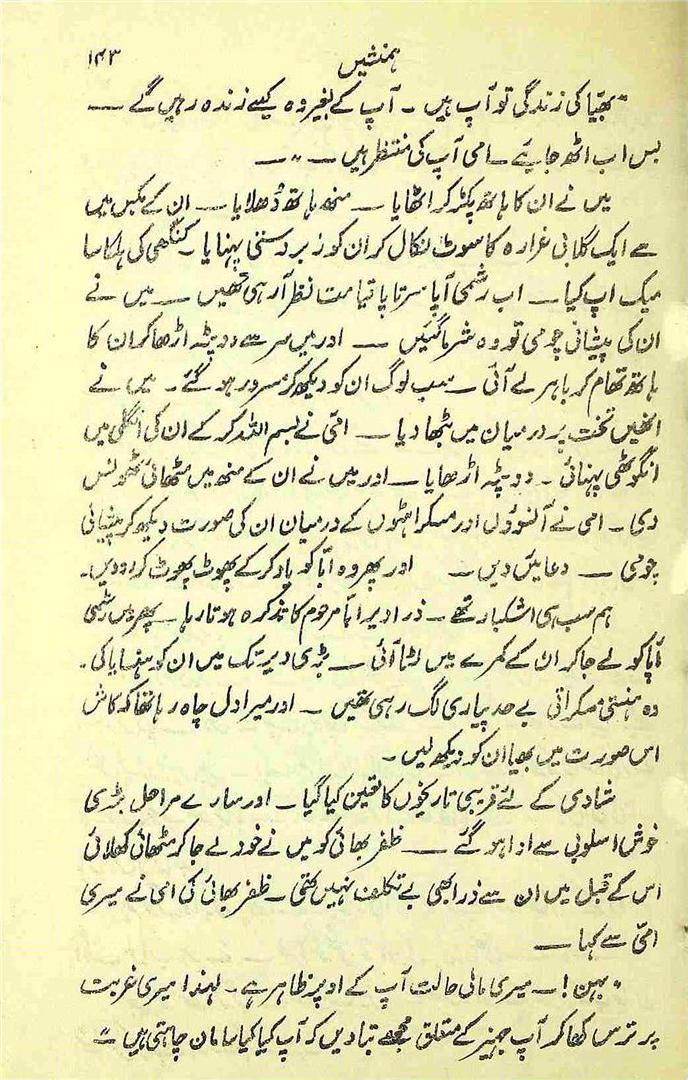 ہمنشیں ۱۴۳
"بھیّا کی زندگی تو آپ ہیں ۔ آپ کے بغیر وہ کیسے زندہ رہیں گے —
بس اب اٹھ جایئے — امی آپ کی منتظر ہیں — " —
میں نے ان کا ہاتھ پکڑ کر اٹھایا — منھ ہاتھ دُھلایا — ان کے بکس میں
سے ایک گلابی غرارہ کا سوٹ نکال کر ان کو زبردستی پہنایا ۔ کنگھی کی ہلکا سا
میک اپ کیا — اب رشمی آپا سرتاپا قیامت نظر آرہی تھیں — میں نے
ان کی پیشانی چومی تو وہ شرما گئیں — اور میں سر سے دوپٹہ اڑھا کر ان کا
ہاتھ تھام کر باہر لے آئی — سب لوگ ان کو دیکھ کر مسرور ہو گئے ۔ میں نے
انھیں تخت پر درمیان میں بٹھا دیا — امّی نے بسم اللہ کر کے ان کی انگلی میں
انگوٹھی پہنائی ۔ دوپٹہ اڑھایا — اور میں نے ان کے منھ میں مٹھائی ٹھونس
دی ۔ امی نے آنسوؤں اور مسکراہٹوں کے درمیان ان کی صورت دیکھ کر پیشانی
چومی — دعائیں دیں — اور پھر وہ ابّا کو یاد کر کے پھوٹ پھوٹ کر رو دیں۔
ہم سب ہی اشکبار تھے ۔ ذرا دیر ابّا مرحوم کا تذکرہ ہوتا رہا — پھر میں رشمی
آپا کو لے جا کر ان کے کمرے میں لٹا آئی — بڑی دیر تک میں ان کو ہنسایا کی ۔
وہ ہنستی مسکراتی بے حد پیاری لگ رہی تھیں — اور میرا دل چاہ رہا تھا کہ کاش
اس صورت میں بھیا ان کو دیکھ لیں ۔
شادی کے لئے قریبی تاریخوں کا تعین کیا گیا ۔ اور سارے مراحل بڑی
خوش اسلوبی سے ادا ہو گئے — ظفر بھائی کو میں نے خود لے جا کر مٹھائی کھلائی
اس کے قبل میں ان سے ذرا بھی بے تکلف نہیں تھی ۔ ظفر بھائی کی امی نے میری
امّی سے کہا —
"بہن ! — میری مالی حالت آپ کے اوپر ظاہر ہے ۔ لہٰذا میری غربت
پر ترس کھا کر آپ جہیز کے متعلق مجھے بتا دیں کہ آپ کیا کیا سامان چاہتی ہیں — "